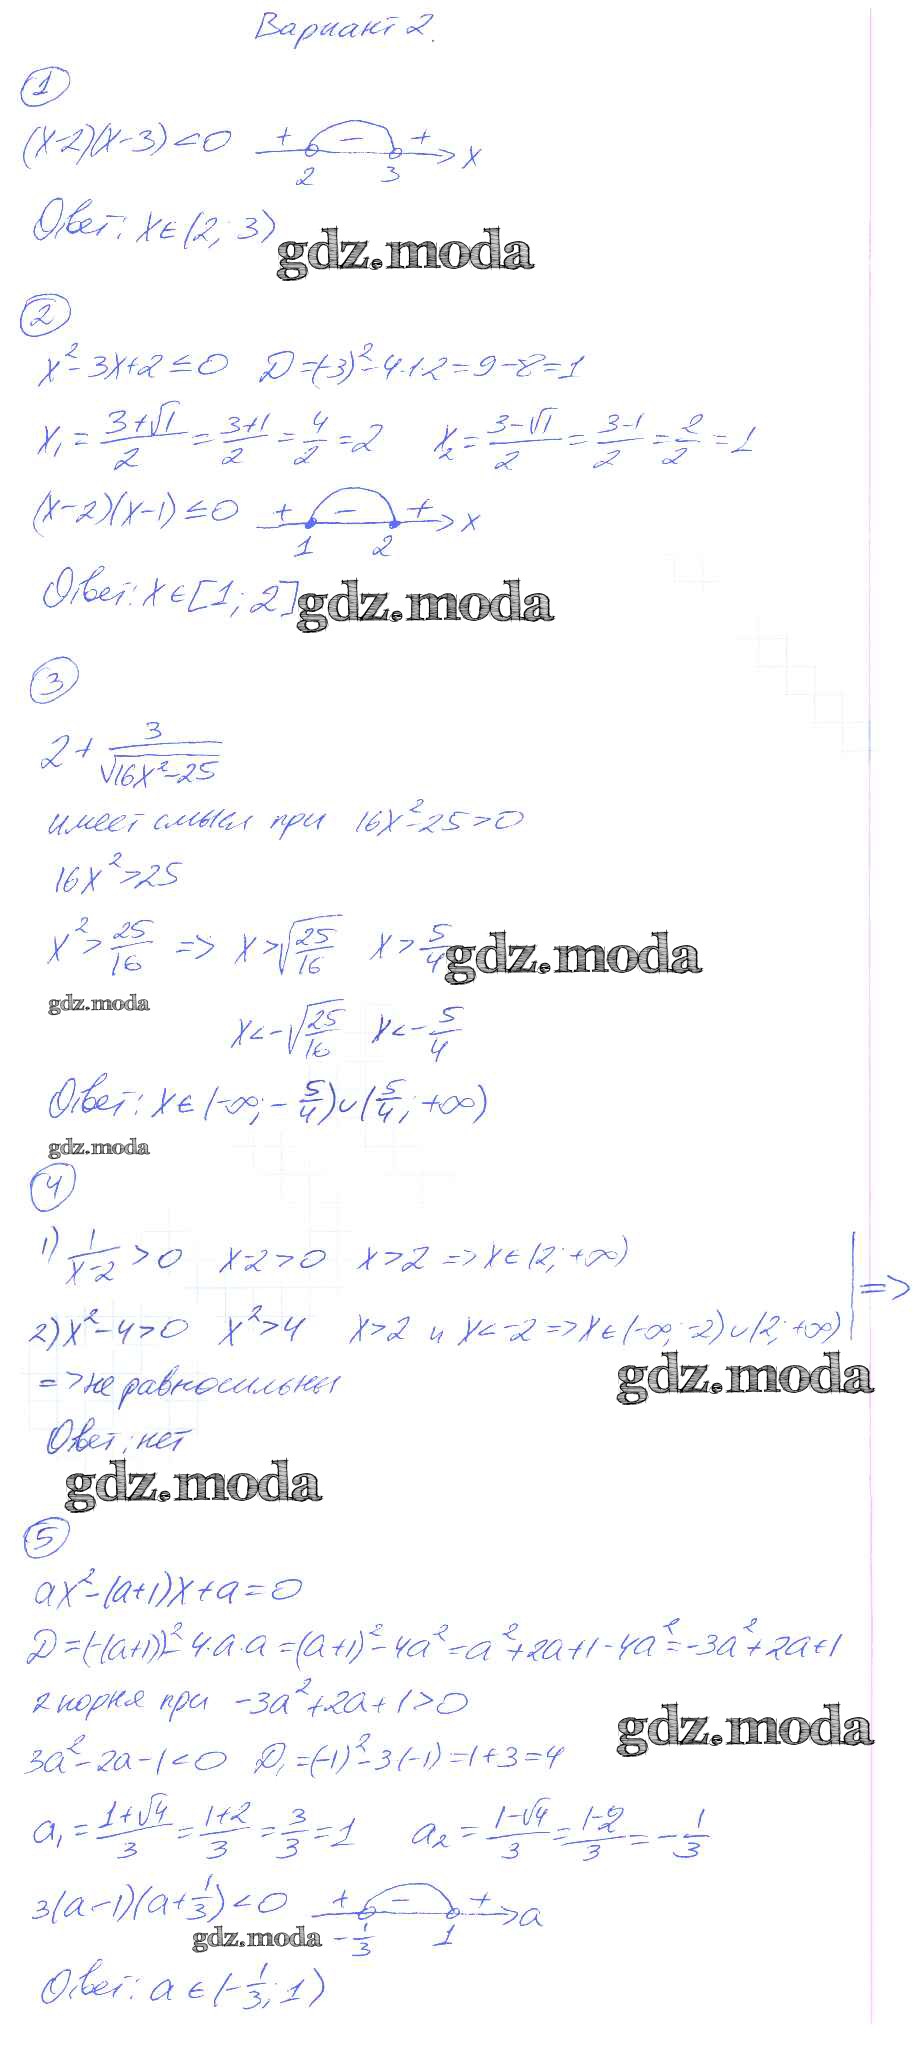 Вариант 2.
1
(x-2)(x-3)<0 + - + x
2 3
Ответ: x∈(2; 3)
gdz.moda
2
x²-3x+2≤0 D=(-3)²-4·1·2=9-8=1
x₁=(3+√1)/2=(3+1)/2=4/2=2 x₂=(3-√1)/2=(3-1)/2=2/2=1
(x-2)(x-1)≤0 + - + x
1 2
Ответ: x∈[1; 2]
gdz.moda
3
2+3/√(16x²-25)
имеет смысл при 16x²-25>0
16x²>25
x²>25/16 => x>√(25/16) x>5/4
gdz.moda
gdz.moda
x<-√(25/16) x<-5/4
Ответ: x∈(-∞; -5/4)∪(5/4; +∞)
gdz.moda
4
1) 1/(x-2)>0 x-2>0 x>2 => x∈(2; +∞)
=>
2) x²-4>0 x²>4 x>2 и x<-2 => x∈(-∞; -2)∪(2; +∞)
=> не равносильны
gdz.moda
Ответ: нет
gdz.moda
5
ax²-(a+1)x+a=0
D=(-(a+1))²-4·a·a=(a+1)²-4a²=a²+2a+1-4a²=-3a²+2a+1
2 корня при -3a²+2a+1>0
gdz.moda
3a²-2a-1<0 D₁=(-1)²-3(-1)=1+3=4
a₁=(1+√4)/3=(1+2)/3=3/3=1 a₂=(1-√4)/3=(1-2)/3=-1/3
3(a-1)(a+1/3)<0 + - + a
gdz.moda
-1/3 1
Ответ: a∈(-1/3; 1)